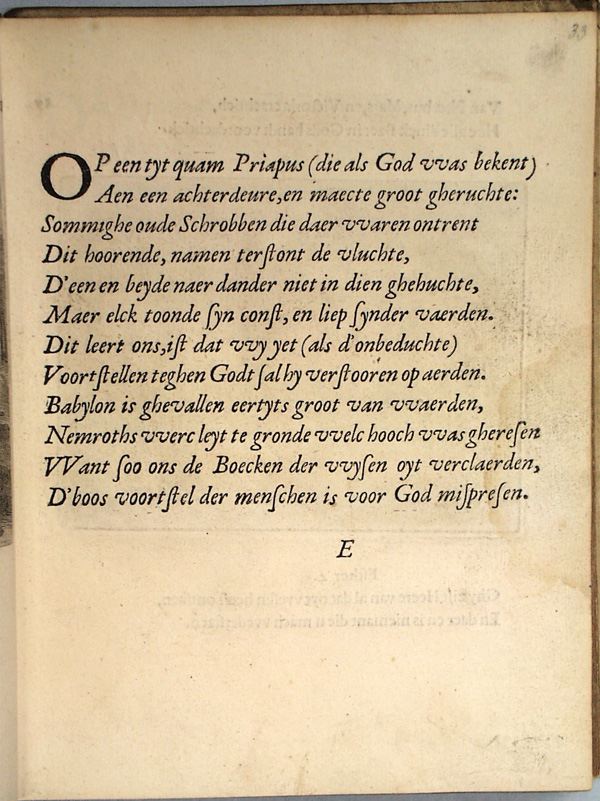 33
OP een tyt quam Priapus (die als God vvas bekent)
Aen een achterdeure, en maecte groot gheruchte:
Sommighe oude Schrobben die daer vvaren ontrent
Dit hoorende, namen terſtont de vluchte,
D'een en beyde naer dander niet in dien ghehuchte,
Maer elck toonde ſyn conſt, en liep ſynder vaerden.
Dit leert ons, iſt dat vvy yet (als d'onbeduchte)
Voortſtellen teghen Godt ſal hy verſtooren op aerden.
Babylon is ghevallen eertyts groot van vvaerden,
Nemroths vverc leyt te gronde vvelc hooch vvas ghereſen
VVant ſoo ons de Boecken der vvyſen oyt verclaerden,
D'boos voortſtel der menſchen is voor God miſpreſen.
E